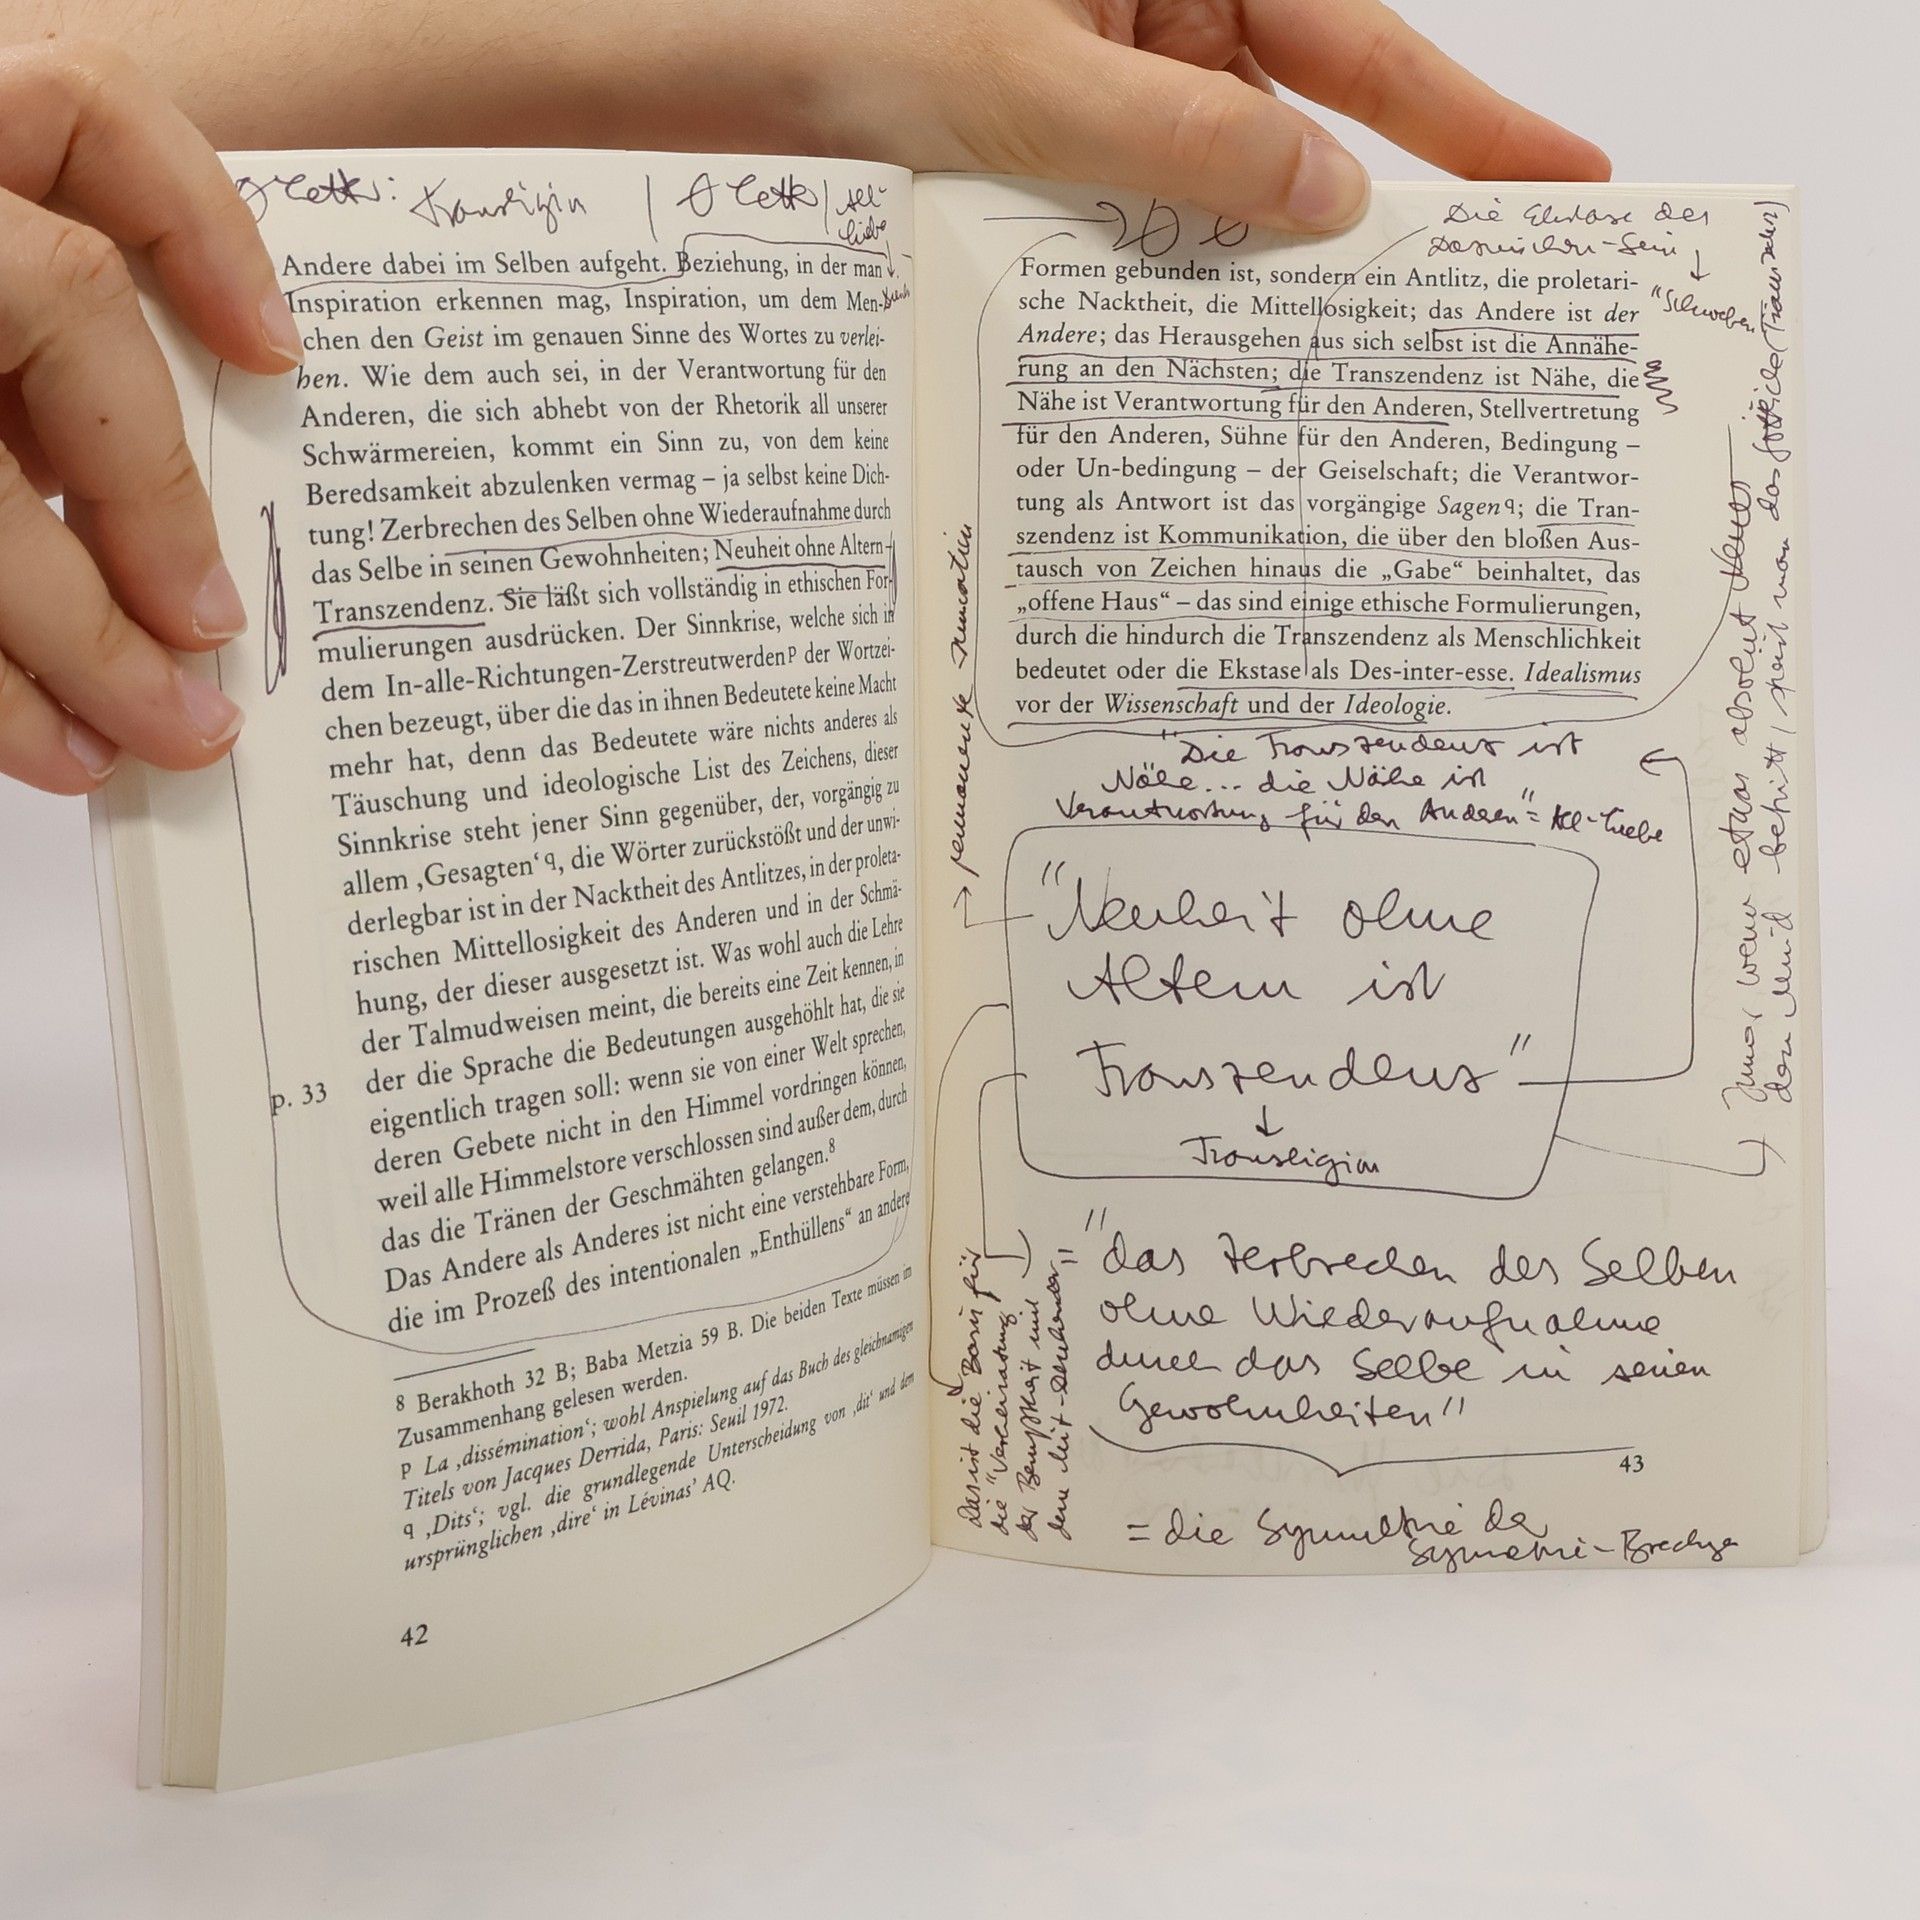 Zettel: Transligion | Zettel | All-
liebe
Andere dabei im Selben aufgeht. Beziehung, in der man
Inspiration erkennen mag, Inspiration, um dem Men-
chen den Geist im genauen Sinne des Wortes zu verlei-
hen. Wie dem auch sei, in der Verantwortung für den
Anderen, die sich abhebt von der Rhetorik all unserer
Schwärmereien, kommt ein Sinn zu, von dem keine
Beredsamkeit abzulenken vermag – ja selbst keine Dich-
tung! Zerbrechen des Selben ohne Wiederaufnahme durch
das Selbe in seinen Gewohnheiten; Neuheit ohne Altern-
Transzendenz. Sie läßt sich vollständig in ethischen For-
mulierungen ausdrücken. Der Sinnkrise, welche sich in
dem In-alle-Richtungen-Zerstreutwerden p der Wortzei-
chen bezeugt, über die das in ihnen Bedeutete keine Macht
mehr hat, denn das Bedeutete wäre nichts anderes als
Täuschung und ideologische List des Zeichens, dieser
Sinnkrise steht jener Sinn gegenüber, der, vorgängig zu
allem ‚Gesagten‘ q, die Wörter zurückstößt und der unwi-
derlegbar ist in der Nacktheit des Antlitzes, in der proleta-
rischen Mittellosigkeit des Anderen und in der Schmä-
hung, der dieser ausgesetzt ist. Was wohl auch die Lehre
der Talmudweisen meint, die bereits eine Zeit kennen, in
der die Sprache die Bedeutungen ausgehöhlt hat, die sie
eigentlich tragen soll: wenn sie von einer Welt sprechen,
p. 33 deren Gebete nicht in den Himmel vordringen können,
weil alle Himmelstore verschlossen sind außer dem, durch
das die Tränen der Geschmähten gelangen.8
Das Andere als Anderes ist nicht eine verstehbare Form,
die im Prozeß des intentionalen „Enthüllens“ an andere
8 Berakhoth 32 B; Baba Metzia 59 B. Die beiden Texte müssen im
Zusammenhang gelesen werden.
p La ‚dissémination‘; wohl Anspielung auf das Buch des gleichnamigen
Titels von Jacques Derrida, Paris: Seuil 1972.
q ‚Dits‘; vgl. die grundlegende Unterscheidung von ‚dit‘ und dem
ursprünglichen ‚dire‘ in Lévinas’ AQ.
42
Die Ekstase des
-Sein
"Schweben
Formen gebunden ist, sondern ein Antlitz, die proletari-
sche Nacktheit, die Mittellosigkeit; das Andere ist der
Andere; das Herausgehen aus sich selbst ist die Annähe-
rung an den Nächsten; die Transzendenz ist Nähe, die
Nähe ist Verantwortung für den Anderen, Stellvertretung
für den Anderen, Sühne für den Anderen, Bedingung –
oder Un-bedingung – der Geiselschaft; die Verantwor-
tung als Antwort ist das vorgängige Sagen q; die Tran-
szendenz ist Kommunikation, die über den bloßen Aus-
tausch von Zeichen hinaus die „Gabe“ beinhaltet, das
„offene Haus“ – das sind einige ethische Formulierungen,
durch die hindurch die Transzendenz als Menschlichkeit
bedeutet oder die Ekstase als Des-inter-esse. Idealismus
vor der Wissenschaft und der Ideologie.
"Die Transzendenz ist
Nähe... die Nähe ist
Verantwortung für den Anderen" = All-Liebe
"Neuheit ohne
Altern ist
Transzendenz"
Transligion
"das Zerbrechen des Selben
ohne Wiederaufnahme
durch das Selbe in seinen
Gewohnheiten"
43
= die Symmetrie der
Symmetrie-Brechung
permanente
Immer wenn etwas absolut Neues
den Mind betritt, spricht man das
das ist die Basis für
die "Verheiratung
der Bewußtheit mit
dem